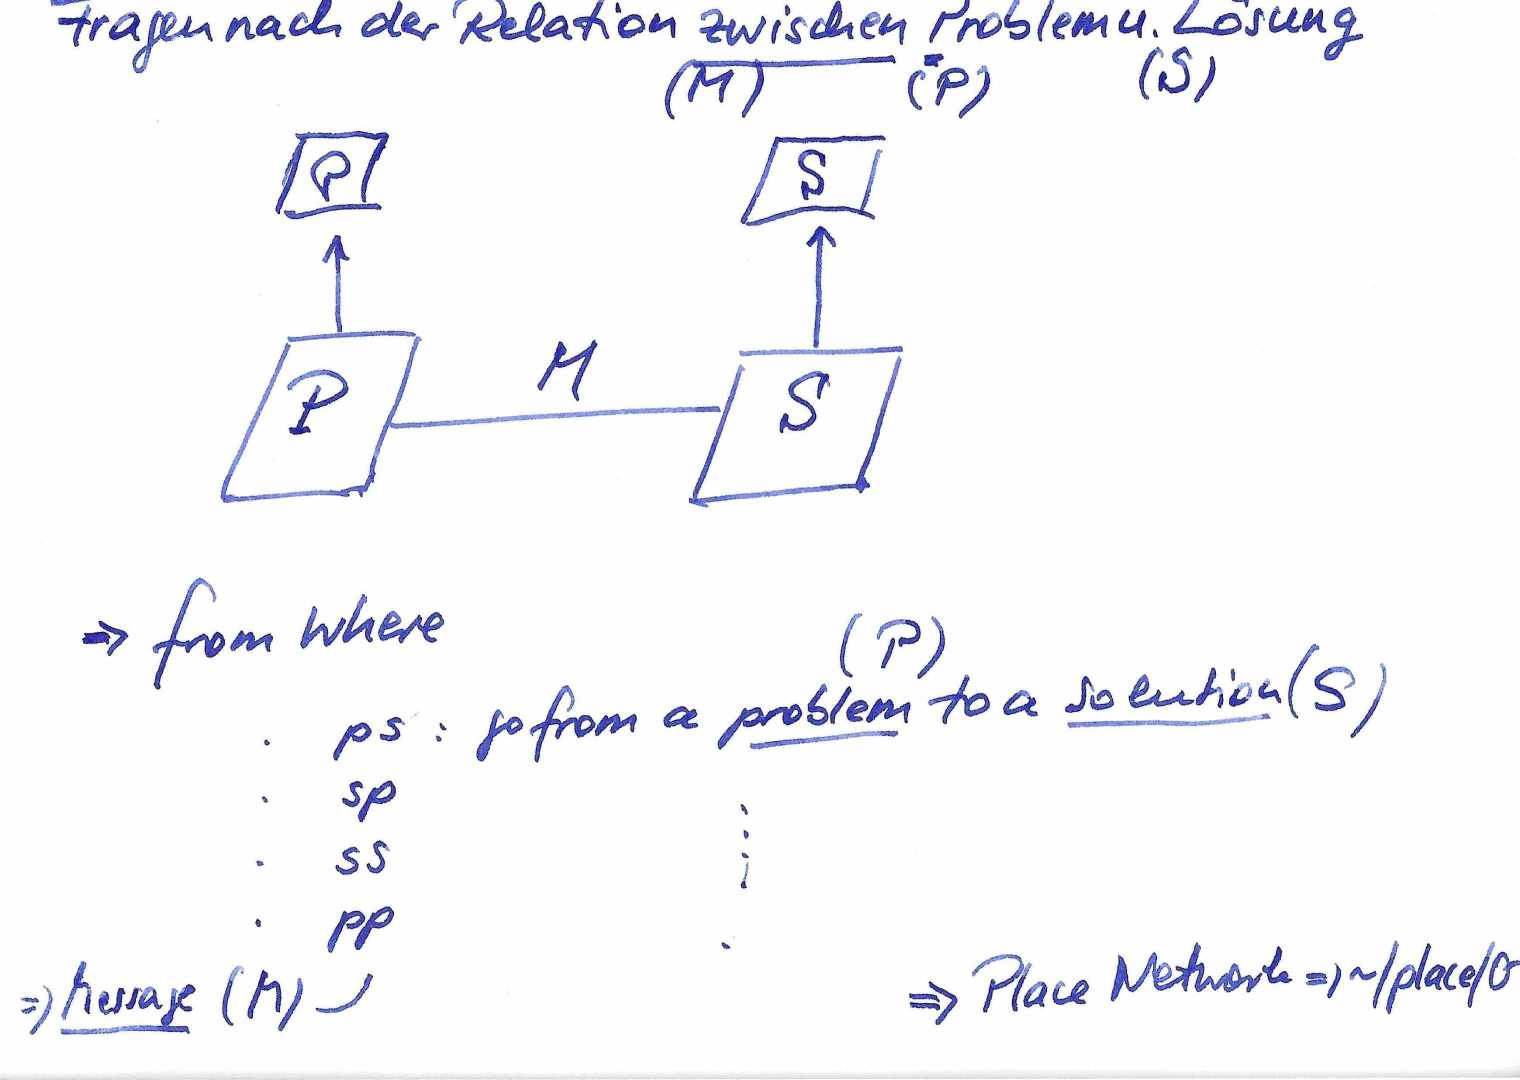 Fragen nach der Relation zwischen Problem u. Lösung
(M) (P) (S)
P S
M
P S
⇒ from where
(P)
· ps : go from a problem to a solution (S)
· sp
· ss
· pp
⇒ Message (M)
⇒ Place Network ⇒ ~/place/